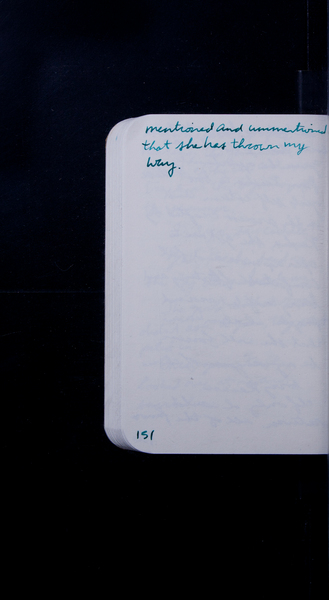 mentioned and unmentioned
that she has thrown my
way.
151